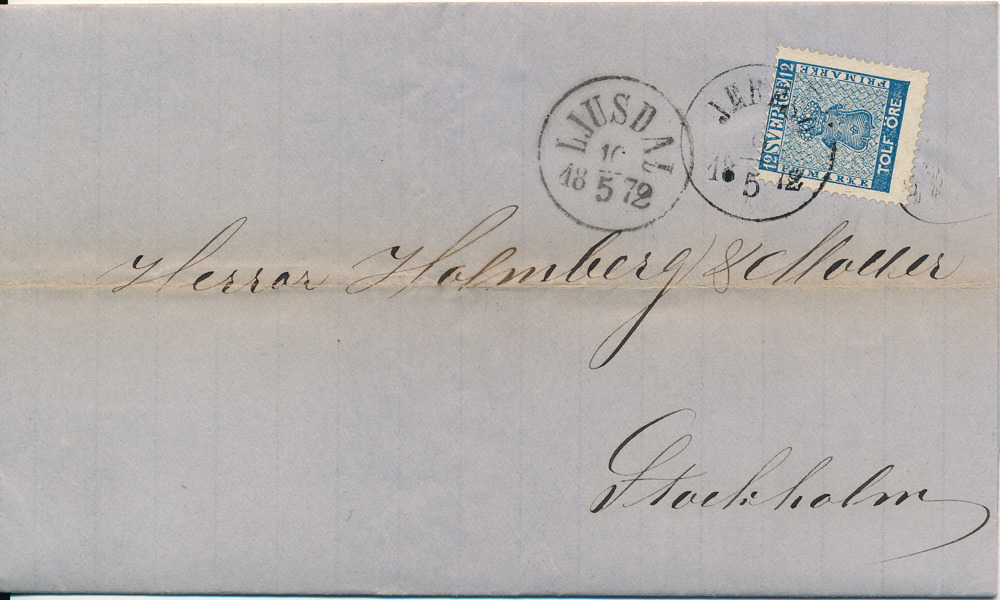 LJUSDAL
10
18 5 72
18 5 72
12 SVERIGE 12
FRIMARKE
FRIMARKE
TOLF ÖRE
Herrar Holmberg & Möller
Stockholm